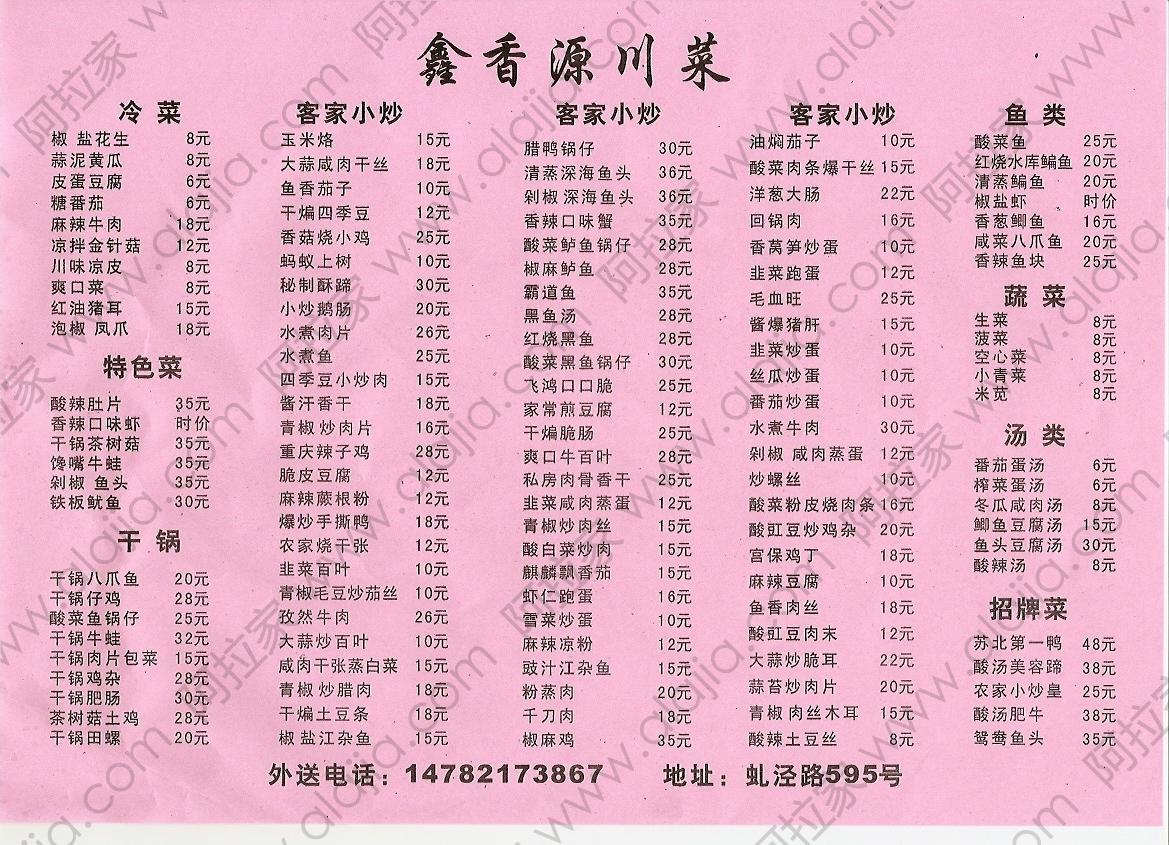 鑫香源川菜
冷菜
椒盐花生 8元
蒜泥黄瓜 8元
皮蛋豆腐 6元
糖番茄 6元
麻辣牛肉 18元
凉拌金针菇 12元
川味凉皮 8元
爽口菜 8元
红油猪耳 15元
泡椒凤爪 18元
特色菜
酸辣肚片 35元
香辣口味虾 时价
干锅茶树菇 35元
馋嘴牛蛙 35元
剁椒鱼头 35元
铁板鱿鱼 30元
干锅
干锅八爪鱼 20元
干锅仔鸡 28元
酸菜鱼锅仔 25元
干锅牛蛙 32元
干锅肉片包菜 15元
干锅鸡杂 28元
干锅肥肠 30元
茶树菇土鸡 28元
干锅田螺 20元
客家小炒
玉米烙 15元
大蒜咸肉干丝 18元
鱼香茄子 10元
干煸四季豆 12元
香菇烧小鸡 25元
蚂蚁上树 10元
秘制酥蹄 30元
小炒鹅肠 20元
水煮肉片 26元
水煮鱼 25元
四季豆小炒肉 15元
酱汗香干 18元
青椒炒肉片 16元
重庆辣子鸡 28元
脆皮豆腐 12元
麻辣蕨根粉 12元
爆炒手撕鸭 18元
农家烧干张 12元
韭菜百叶 10元
青椒毛豆炒茄丝 10元
孜然牛肉 26元
大蒜炒百叶 10元
咸肉干张蒸白菜 15元
青椒炒腊肉 18元
干煸土豆条 18元
椒盐江杂鱼 15元
客家小炒
腊鸭锅仔 30元
清蒸深海鱼头 36元
剁椒深海鱼头 36元
香辣口味蟹 35元
酸菜鲈鱼锅仔 28元
椒麻鲈鱼 28元
霸道鱼 35元
黑鱼汤 28元
红烧黑鱼 28元
酸菜黑鱼锅仔 30元
飞鸿口口脆 25元
家常煎豆腐 12元
干煸脆肠 25元
爽口牛百叶 28元
私房肉骨香干 25元
韭菜咸肉蒸蛋 12元
青椒炒肉丝 15元
酸白菜炒肉 15元
麒麟飘香茄 15元
虾仁跑蛋 16元
雪菜炒蛋 10元
麻辣凉粉 12元
豉汁江杂鱼 15元
粉蒸肉 20元
千刀肉 18元
椒麻鸡 35元
客家小炒
油焖茄子 10元
酸菜肉条爆干丝 15元
洋葱大肠 22元
回锅肉 16元
香莴笋炒蛋 10元
韭菜跑蛋 12元
毛血旺 25元
酱爆猪肝 15元
韭菜炒蛋 10元
丝瓜炒蛋 10元
番茄炒蛋 10元
水煮牛肉 30元
剁椒咸肉蒸蛋 12元
炒螺丝 10元
酸菜粉皮烧肉条 16元
酸豇豆炒鸡杂 20元
宫保鸡丁 18元
麻辣豆腐 10元
鱼香肉丝 18元
酸豇豆肉末 12元
大蒜炒脆耳 22元
蒜苔炒肉片 20元
青椒肉丝木耳 15元
酸辣土豆丝 8元
鱼类
酸菜鱼 25元
红烧水库鳊鱼 20元
清蒸鳊鱼 20元
椒盐虾 时价
香葱鲫鱼 16元
咸菜八爪鱼 20元
香辣鱼块 25元
蔬菜
生菜 8元
菠菜 8元
空心菜 8元
小青菜 8元
米苋 8元
汤类
番茄蛋汤 6元
榨菜蛋汤 6元
冬瓜咸肉汤 8元
鲫鱼豆腐汤 15元
鱼头豆腐汤 30元
酸辣汤 8元
招牌菜
苏北第一鸭 48元
酸汤美容蹄 38元
农家小炒皇 25元
酸汤肥牛 38元
鸳鸯鱼头 35元
外送电话：14782173867 地址：虬泾路595号
阿拉家 www.alajia.com